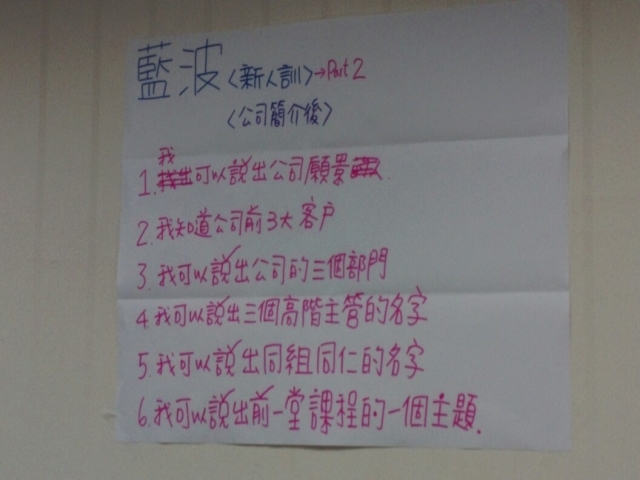 藍波〈新人訓〉→Part 2
〈公司簡介後〉
1. 我可以說出公司願景.
2. 我知道公司前3大客户
3. 我可以說出公司的三個部門
4 我可以說出三個高階主管的名字
5. 我可以說出同組同仁的名字
6. 我可以說出前一堂課程的一個主題.